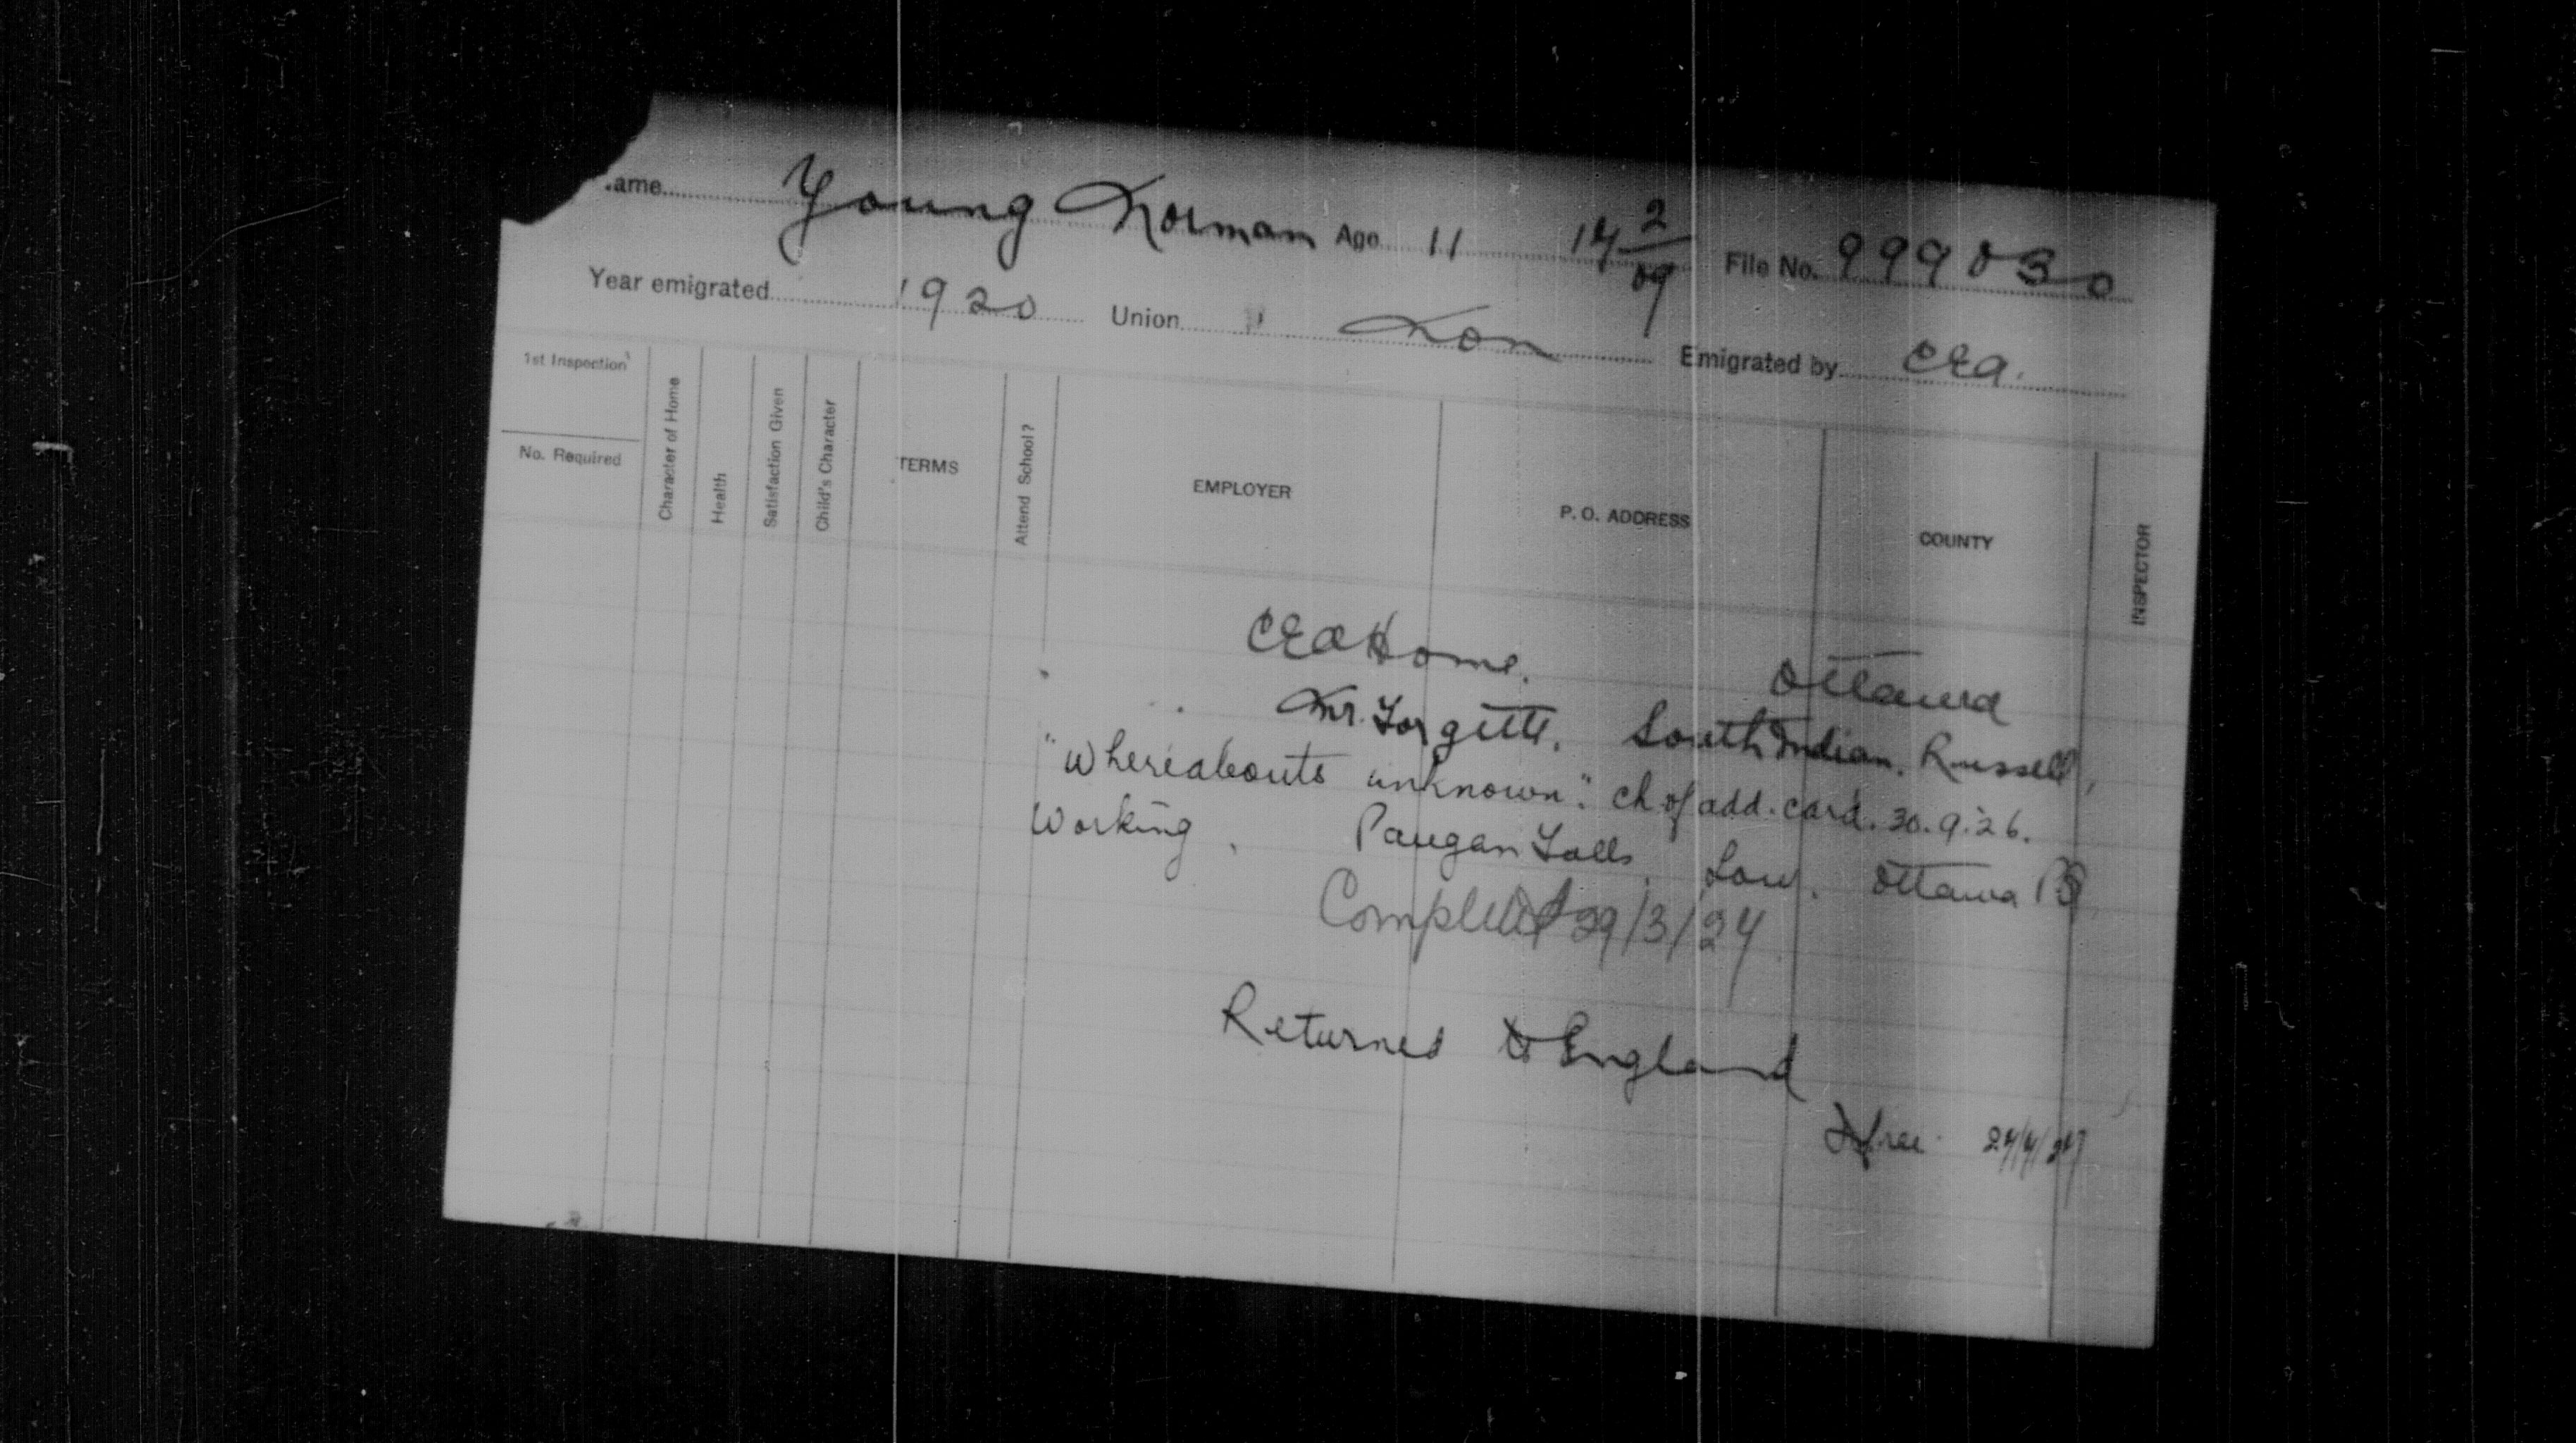 ame Young Norman Age 11 14 2/09 File No. 999030
Year emigrated 1920 Union Non Emigrated by CEA.
1st Inspection
No. Required
Character of Home
Health
Satisfaction Given
Child's Character
TERMS
Attend School?
EMPLOYER
P. O. ADDRESS
COUNTY
INSPECTOR
CEA Home. Ottawa
Mr. Forgette. South Indian. Russell,
"Whereabouts unknown". ch of add. card. 30.9.26.
Working, Paugan Falls, Low. Ottawa PQ
Completed 29/3/24
Returned to England